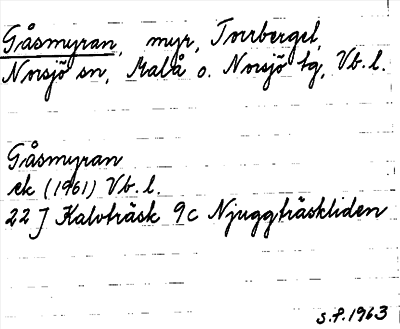 Gåsmyran, myr, Torrberget,
Norsjö sn, Malå o. Norsjö tg, Vb. l.
Gåsmyran
ek (1961) Vb. l.
22 J Kalvträsk 9c Njuggträskliden
S.P. 1963